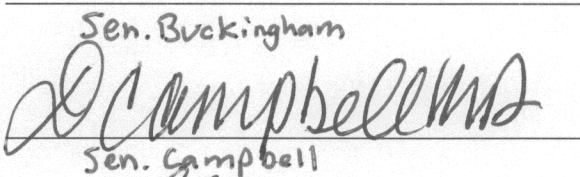 Sen. Buckingham
D Campbell MD
Sen. Campbell